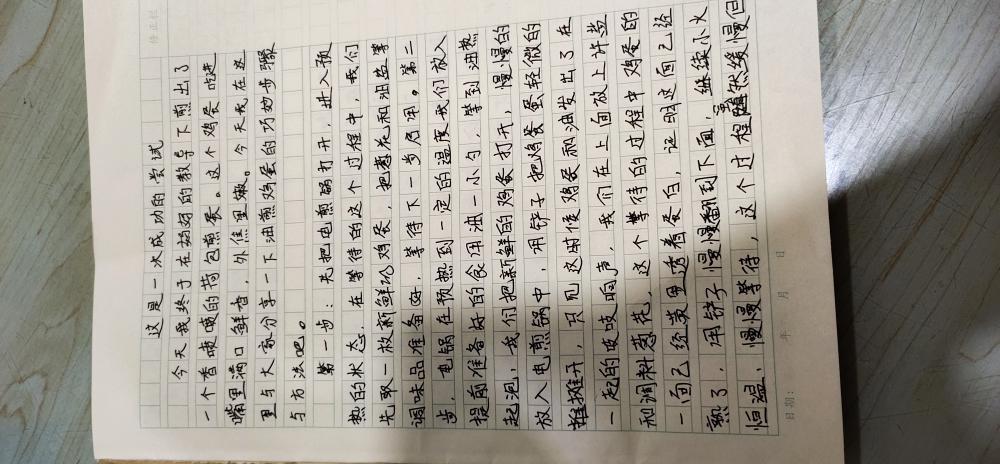 这是一次成功的尝试
今天我终于在妈妈的教导下煎出了
一个香喷喷的荷包煎蛋。这个鸡蛋吃进
嘴里满口鲜香，外焦里嫩。今天我在这
里与大家分享一下油煎鸡蛋的巧功步骤
与方法吧。
第一步：先把电煎锅打开，进入预
热的状态，在等待的这个过程中，我们
先取一枚新鲜的鸡蛋，把葱花和油盐等
调味品准备好，等待下一步启用。第二
步，电锅在预热到一定的温度我们放入
提前准备好的食用油一小勺，等到油热
起泡，我们把新鲜的鸡蛋打开，慢慢的
放入电煎锅中，用铲子把鸡蛋轻微的
摊开，只见这时候鸡蛋和油发出了在
一起的吱吱响声，我们在上面放上许盐
和调料葱花，这个等待的过程中鸡蛋的
一面已经黄里透着蛋白，证明这面已经
熟了，用铲子慢慢翻到下面，继续小火
恒温、慢慢等待，这个过程虽然缓慢但
日期： 年 月 日